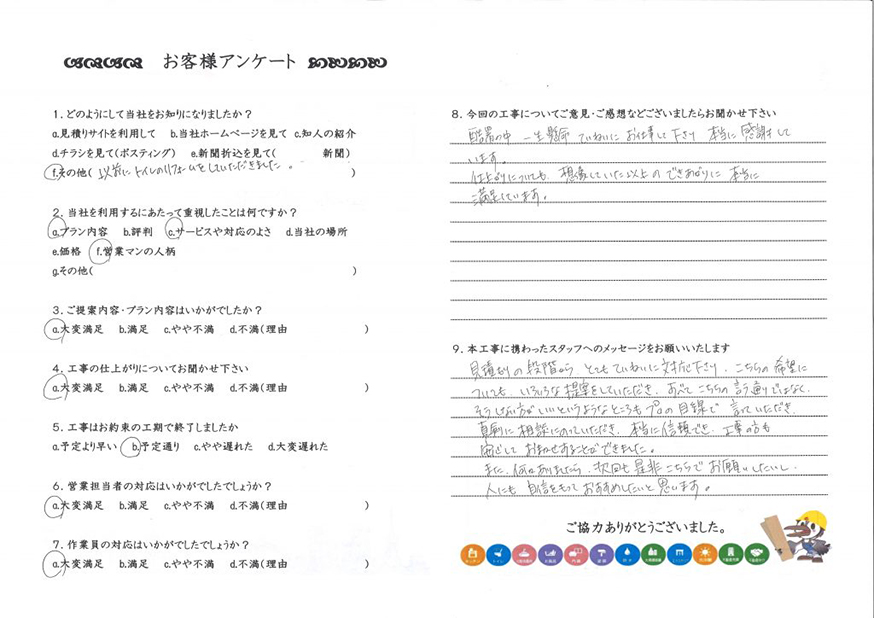 お客様アンケート
1．どのようにして当社をお知りになりましたか？
a.見積りサイトを利用して b.当社ホームページを見て c.知人の紹介
d.チラシを見て(ポスティング) e.新聞折込を見て( 新聞)
f.その他( 以前にトイレのリフォームをしていただきました。 )
2．当社を利用するにあたって重視したことは何ですか？
a.プラン内容 b.評判 c.サービスや対応のよさ d.当社の場所
e.価格 f.営業マンの人柄
g.その他( )
3．ご提案内容・プラン内容はいかがでしたか？
a.大変満足 b.満足 c.やや不満 d.不満(理由 )
4．工事の仕上がりについてお聞かせ下さい
a.大変満足 b.満足 c.やや不満 d.不満(理由 )
5．工事はお約束の工期で終了しましたか
a.予定より早い b.予定通り c.やや遅れた d.大変遅れた
6．営業担当者の対応はいかがでしたでしょうか？
a.大変満足 b.満足 c.やや不満 d.不満(理由 )
7．作業員の対応はいかがでしたでしょうか？
a.大変満足 b.満足 c.やや不満 d.不満(理由 )
8．今回の工事についてご意見・ご感想などございましたらお聞かせ下さい
酷暑の中 一生懸命 ていねいに お仕事して下さり 本当に 感謝して
います。
仕上がりについても、想像していた以上の できあがりに 本当に
満足しています。
9．本工事に携わったスタッフへのメッセージをお願いいたします
見積りの段階から、とてもていねいに対応下さり、こちらの希望に
ついても、いろいろな提案をしていただき、すべて こちらの 言う通りではなく、
そうしない方がいいというようなところも プロの目線で 言っていただき、
真剣に相談にのっていただき、本当に信頼でき、工事の方も
安心して おまかせすることができました。
また、何かありましたら、次回も是非こちらで お願いしたいし、
人にも 自信をもって おすすめしたいと思います。
ご協力ありがとうございました。